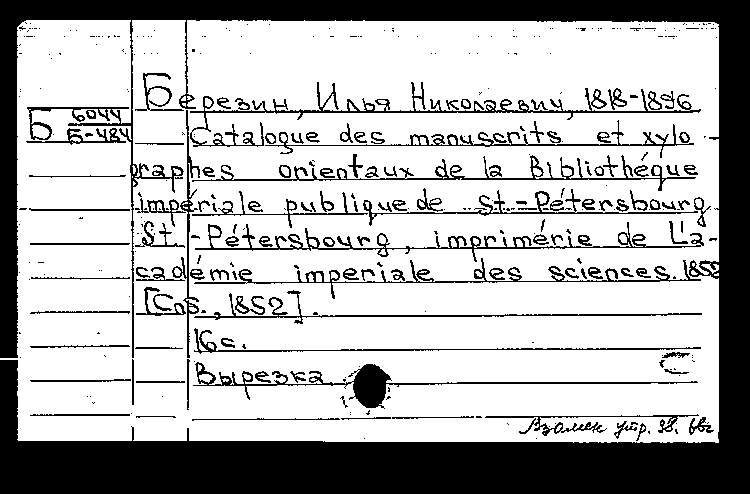 Березин, Илья Николаевич, 1818-1896
Б 6044
Б-484
Catalogue des manuscrits et xylo-
graphes orientaux de la Bibliothéque
impériale publique de St.-Pétersbourg
St.-Pétersbourg, imprimérie de L'a-
cadémie imperiale des sciences. 1852
[Спб., 1852].
16 с.
Вырезка
Взамен утр. 38.